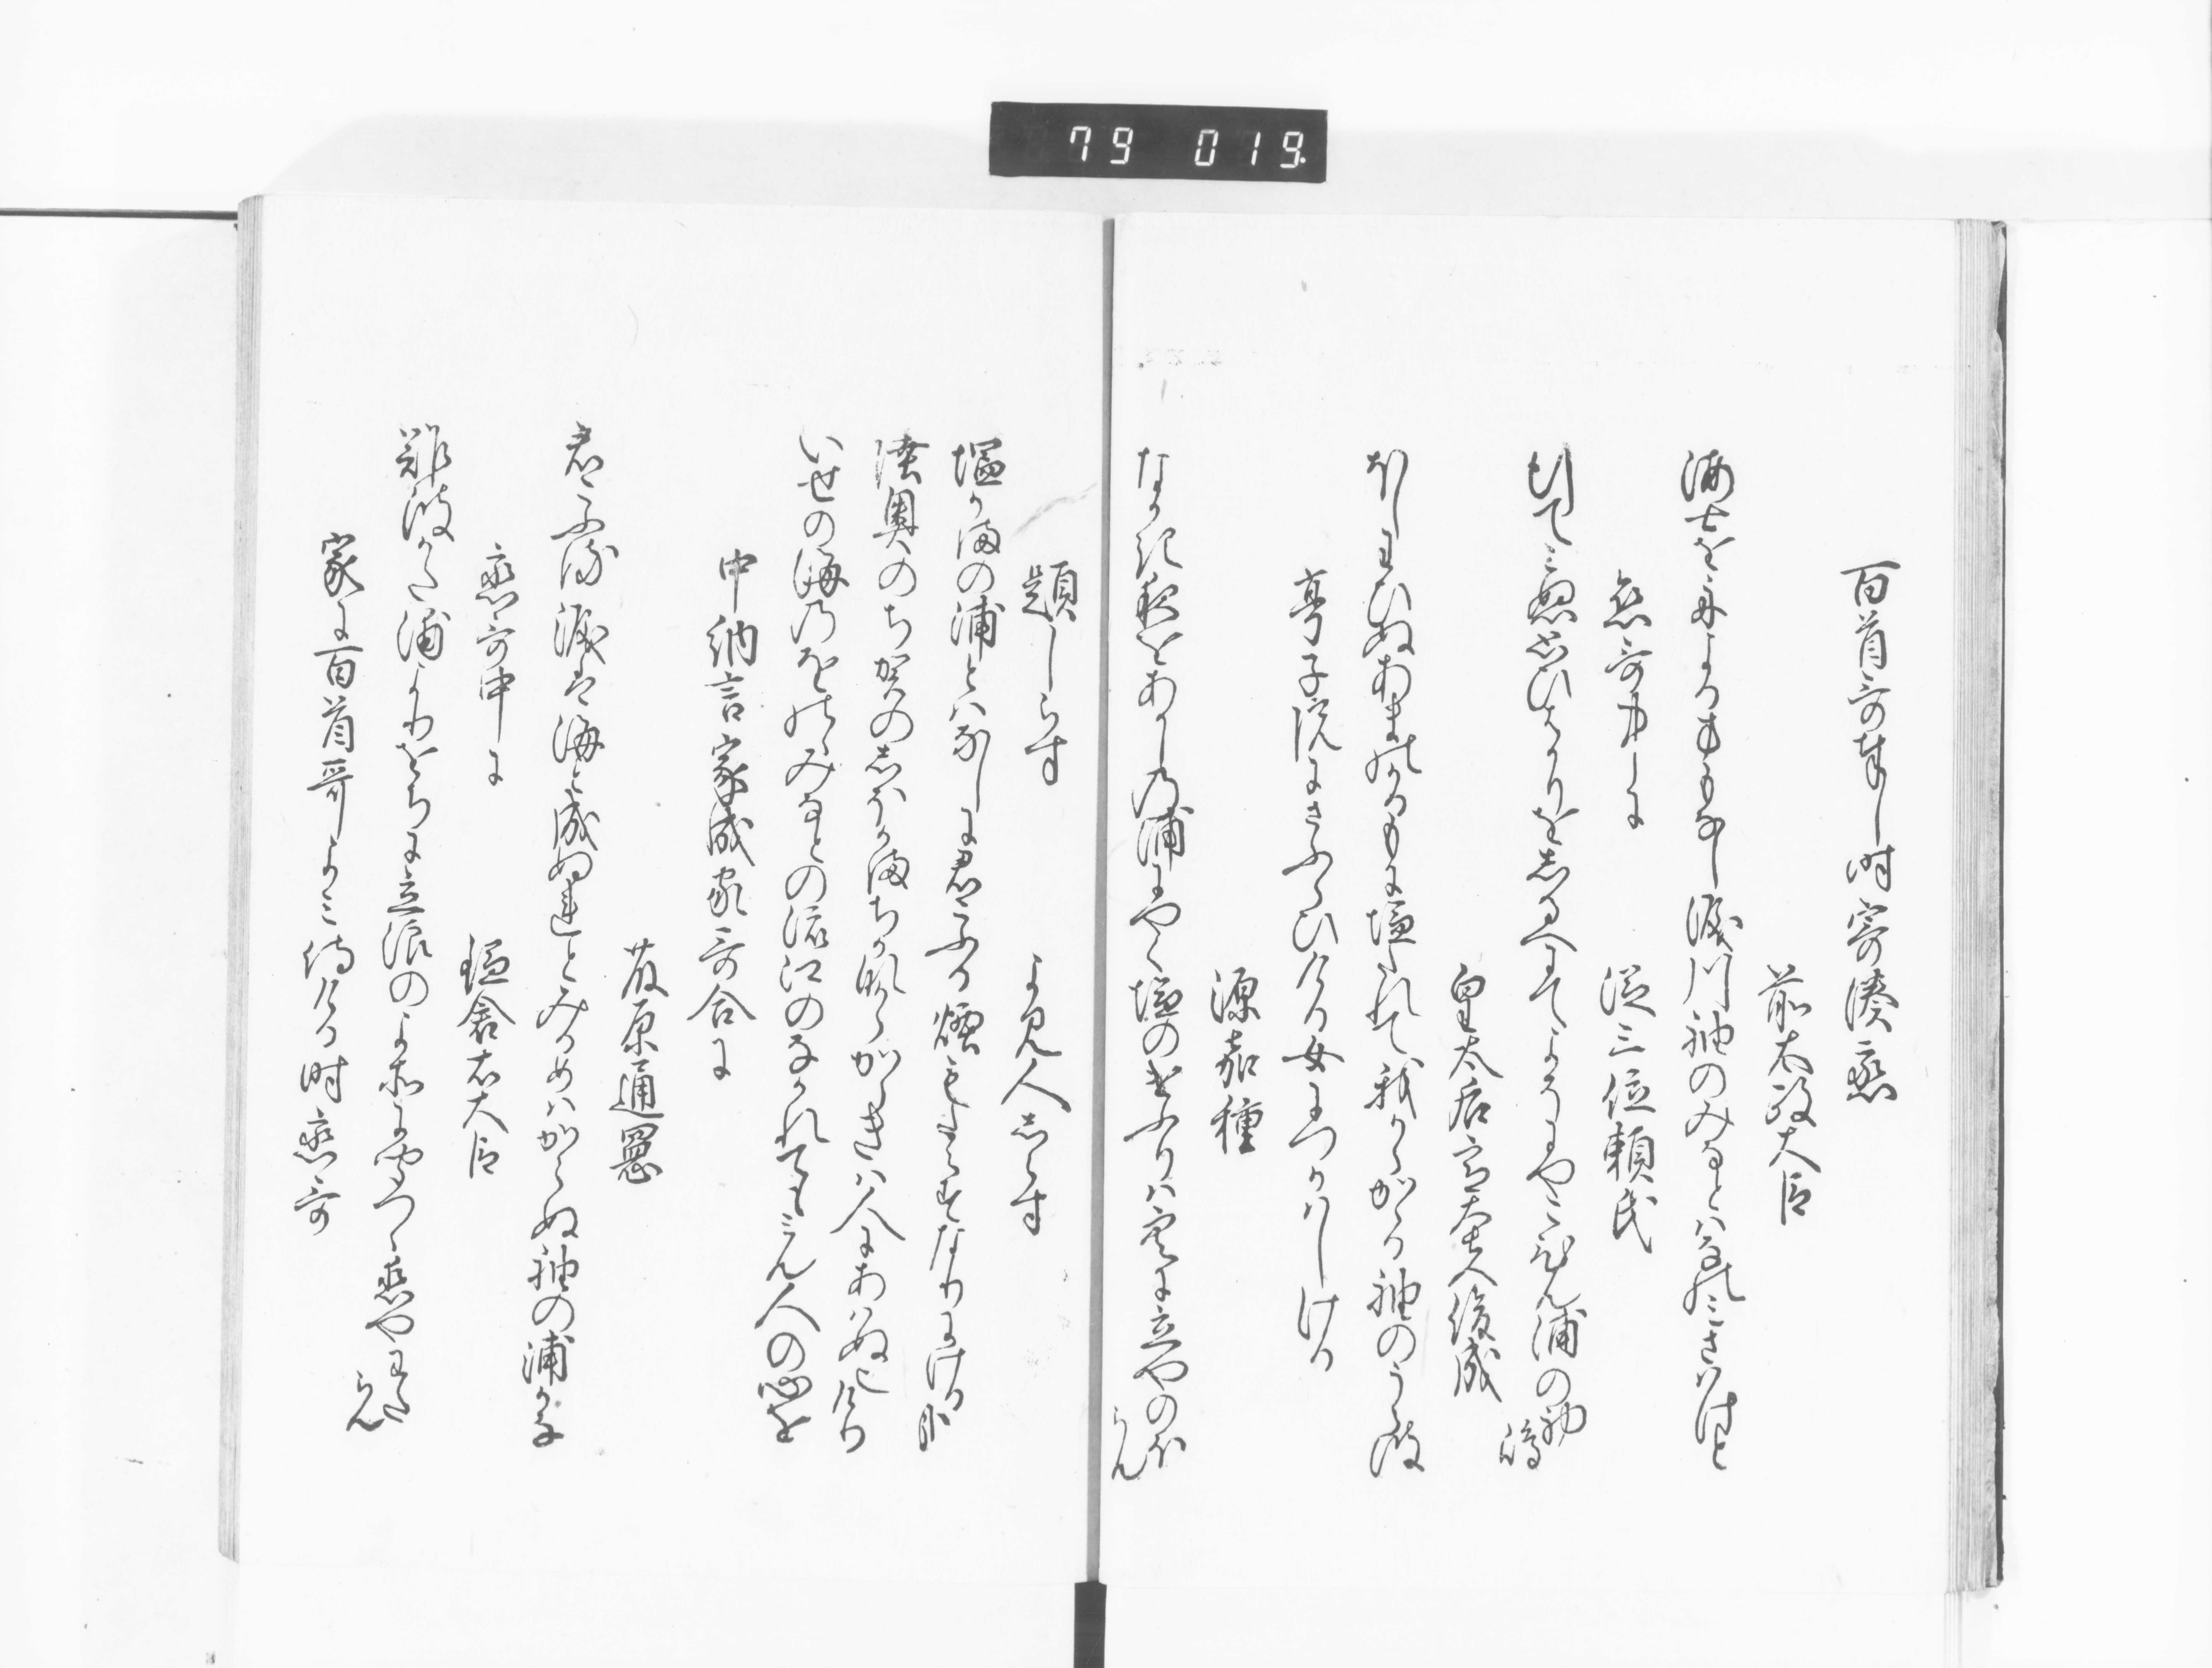 79 019.
百首哥奉し時寄湊恋
前太政大臣
海士を舟よるせもなし涙川袖のみなとはなのみさはけと
恋哥中に
従三位頼氏
忍ひをしるへにてよるへやこひん浦の初嶋
皇太后宮大夫俊成
ほしわひぬあまのかるもに塩たれて我からかゝる袖のうら波
亭子院にさふらひける女につかはしける
源嘉種
なかき夜をあかしの浦にやく塩のけふりは空に立やのほらん
題しらす
よみ人しらす
塩かまの浦とはなしに君こふる煙もたえすなりにける哉
陸奥のちかのしほかまちかなからからきは人にあはぬ也けり
いせの海のをのゝみなとの流江のなかれてもみん人の心を
中納言家成家哥合に
藤原通憲
君こふる涙は海と成ぬれとみるめはからぬ袖の浦かな
恋哥中に
鎌倉右大臣
難波かた浦よりをちに立浪のよそにやつゝ恋やわたらん
家に百首哥よみ侍ける時恋哥